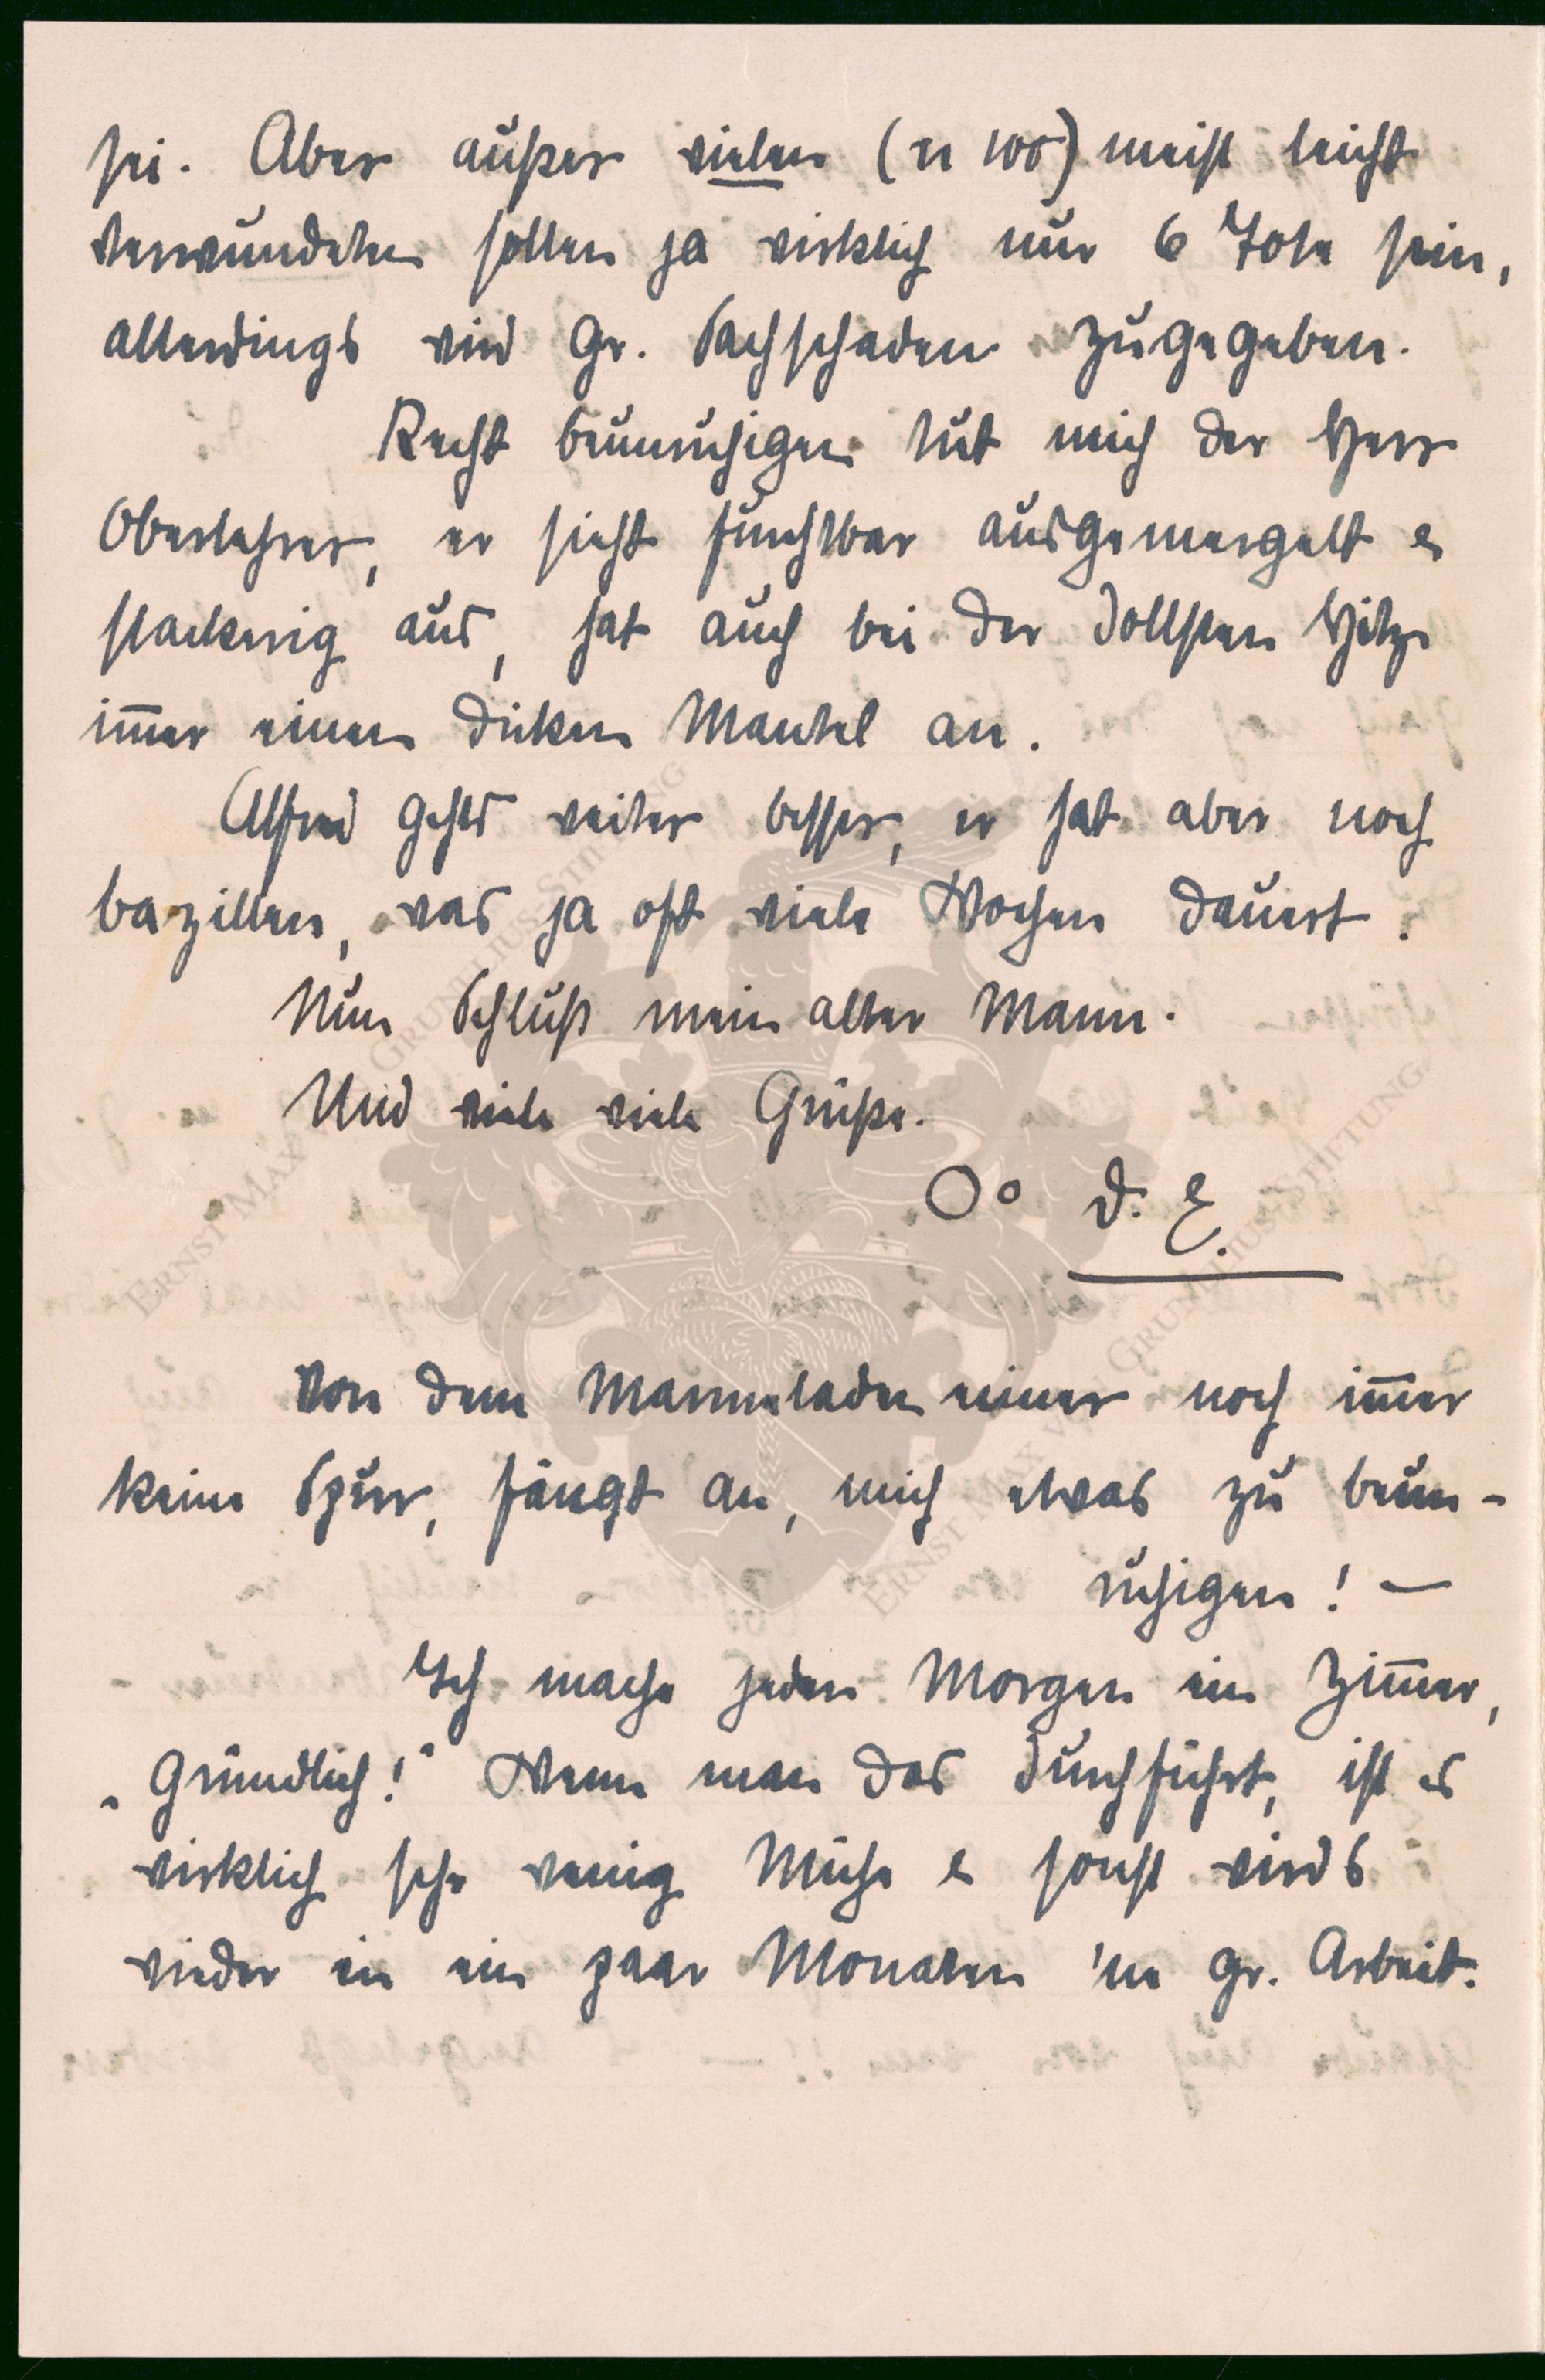 sei. Aber außer vielen (n 100) meist leicht
Verwundeten sollen ja wirklich nur 6 Tote sein,
allerdings wird gr. Sachschaden zugegeben.
Recht beunruhigen tut mich der Herr
Oberlehrer, er sieht furchtbar ausgemergelt &
stackerig aus, hat auch bei der dollsten Hitze
im̅er einen dicken Mantel an.
Alfred gehts weiter besser, er hat aber noch
bazillen, was ja oft viele Wochen dauert.
Nun Schluß mein alter Mann.
Und viele viele Grüße.
Oo D. E.
Von dem Marmeladeneimer noch im̅er
keine Spur, fängt an, mich etwas zu beun-
ruhigen! —
Ich mache jeden Morgen ein Zim̅er,
„Gründlich!“ Wenn man das durchführt, ist es
wirklich sehr wenig Mühe & sonst wirds
wieder in ein paar Monaten 'ne gr. Arbeit.
ERNST MAX VON GRUNELIUS-STIFTUNG
ERNST MAX VON GRUNELIUS-STIFTUNG